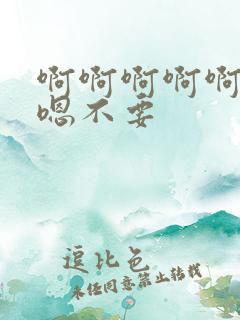 啊啊啊啊啊
嗯不要
逗比色
未经同意禁止转载